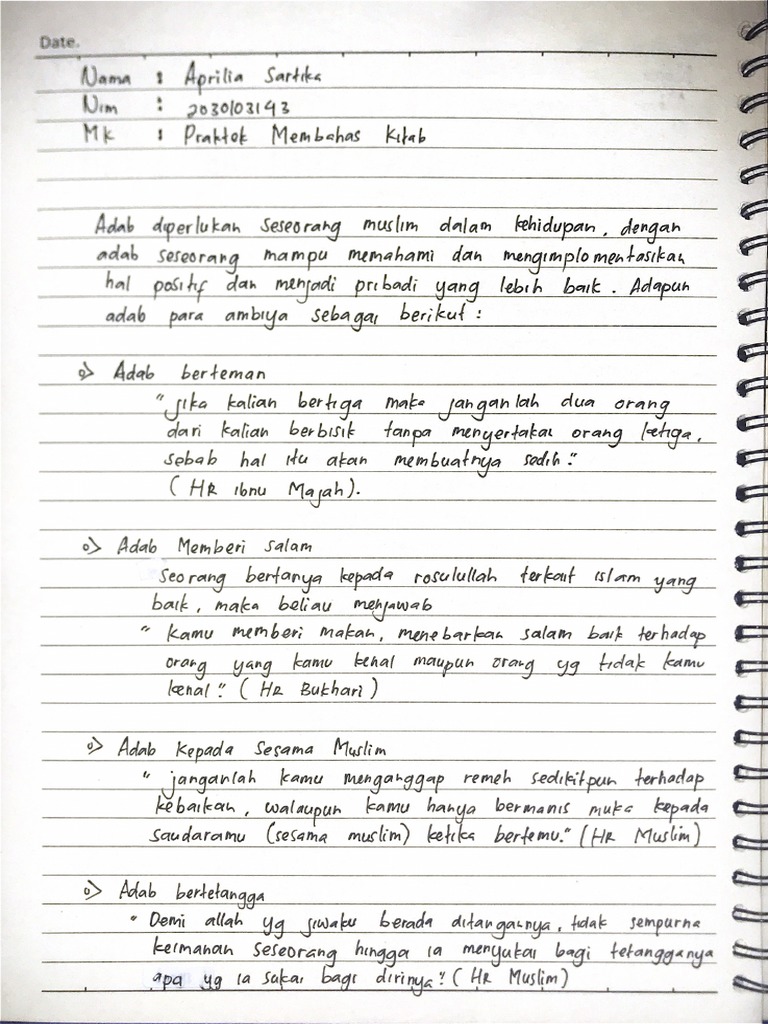 Date.
Nama : Aprilia Sartika
Nim : 2030103143
Mk : Praktek Membahas Kitab
Adab diperlukan seseorang muslim dalam kehidupan, dengan
adab seseorang mampu memahami dan mengimplomentasikan
hal positif dan menjadi pribadi yang lebih baik. Adapun
adab para ambiya sebagai berikut :
o> Adab berteman
" jika kalian bertiga maka janganlah dua orang
dari kalian berbisik tanpa menyertakai orang ketiga,
sebab hal itu akan membuatnya sedih."
( HR ibnu Majah).
o> Adab Memberi salam
seorang bertanya kepada rosulullah terkait islam yang
baik, maka beliau menjawab
" kamu memberi makan, menebarkan salam baik terhadap
orang yang kamu kenal maupun orang yg tidak kamu
kenal". ( HR Bukhari )
o> Adab kepada Sesama Muslim
" janganlah kamu menganggap remeh sedikitpun terhadap
kebaikan, walaupun kamu hanya bermanis muka kepada
saudaramu (sesama muslim) ketika bertemu." (HR Muslim)
o> Adab bertetangga
" Demi allah yg jiwaku berada ditangannya, tidak sempurna
keimanan seseorang hingga ia menyukai bagi tetangganya
apa yg ia sukai bagi dirinya". ( HR Muslim)